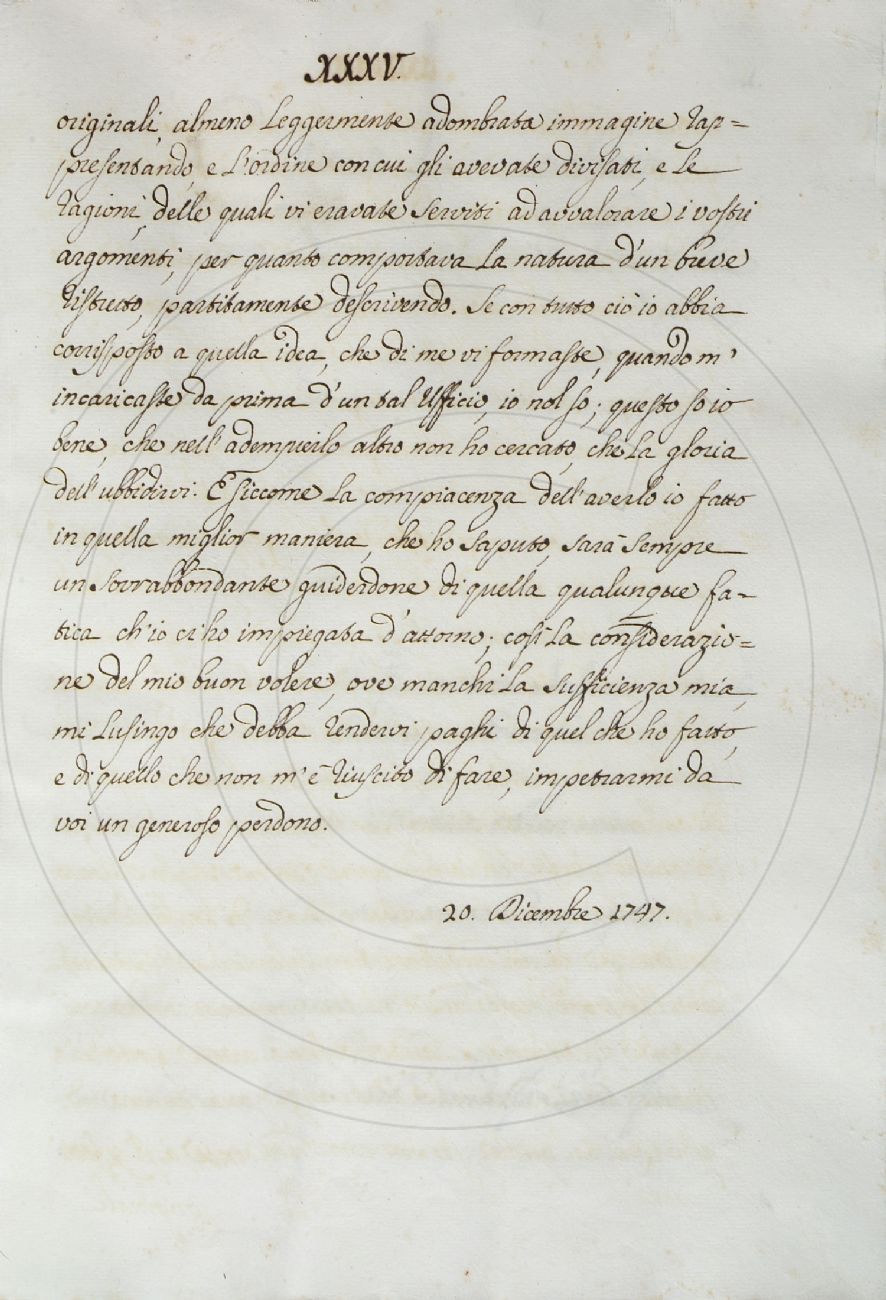 XXXV.
originali, almeno leggermente adombrata immagine rap=
presentando, e l'ordine con cui gli avevate divisati, e le
ragioni, delle quali vi eravate serviti ad avvalorare i vostri
argomenti, per quanto comportava la natura d'un breve
ristretto, partitamente descrivendo. Se con tutto ciò io abbia
corrisposto a quella idea, che di me vi formaste, quando m'
incaricaste da prima d'un tal Ufficio, io nol so; questo so io
bene, che nell'adempierlo altro non ho cercato, che la gloria
dell'ubbidirvi. E siccome la compiacenza dell'averlo io fatto
in quella miglior maniera, che ho saputo, sarà sempre
un sovrabbondante guiderdone di quella qualunque fa-
tica ch'io ci ho impiegata d'attorno; così la considerazio=
ne del mio buon volere, ove manchi la sufficienza mia,
mi lusingo che debba rendervi paghi di quel che ho fatto,
e di quello che non m'è riuscito di fare, impetrarmi da
voi un generoso perdono.
20. Dicembre 1747.